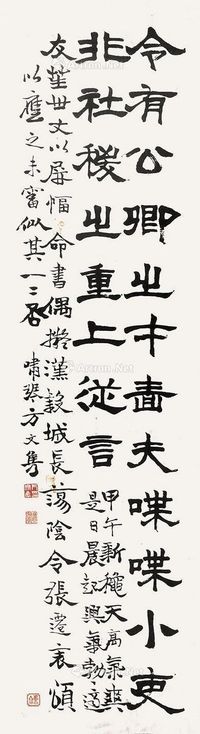 令有公卿之才啬夫喋喋小吏
非社稷之重上從言
甲午新穐天高氣爽
是日晨起興氣勃
友莖世丈以屏幅命書偶擬漢穀城長蕩陰令張遷表頌
以應之未審似其一二否
嘯琴方文雋